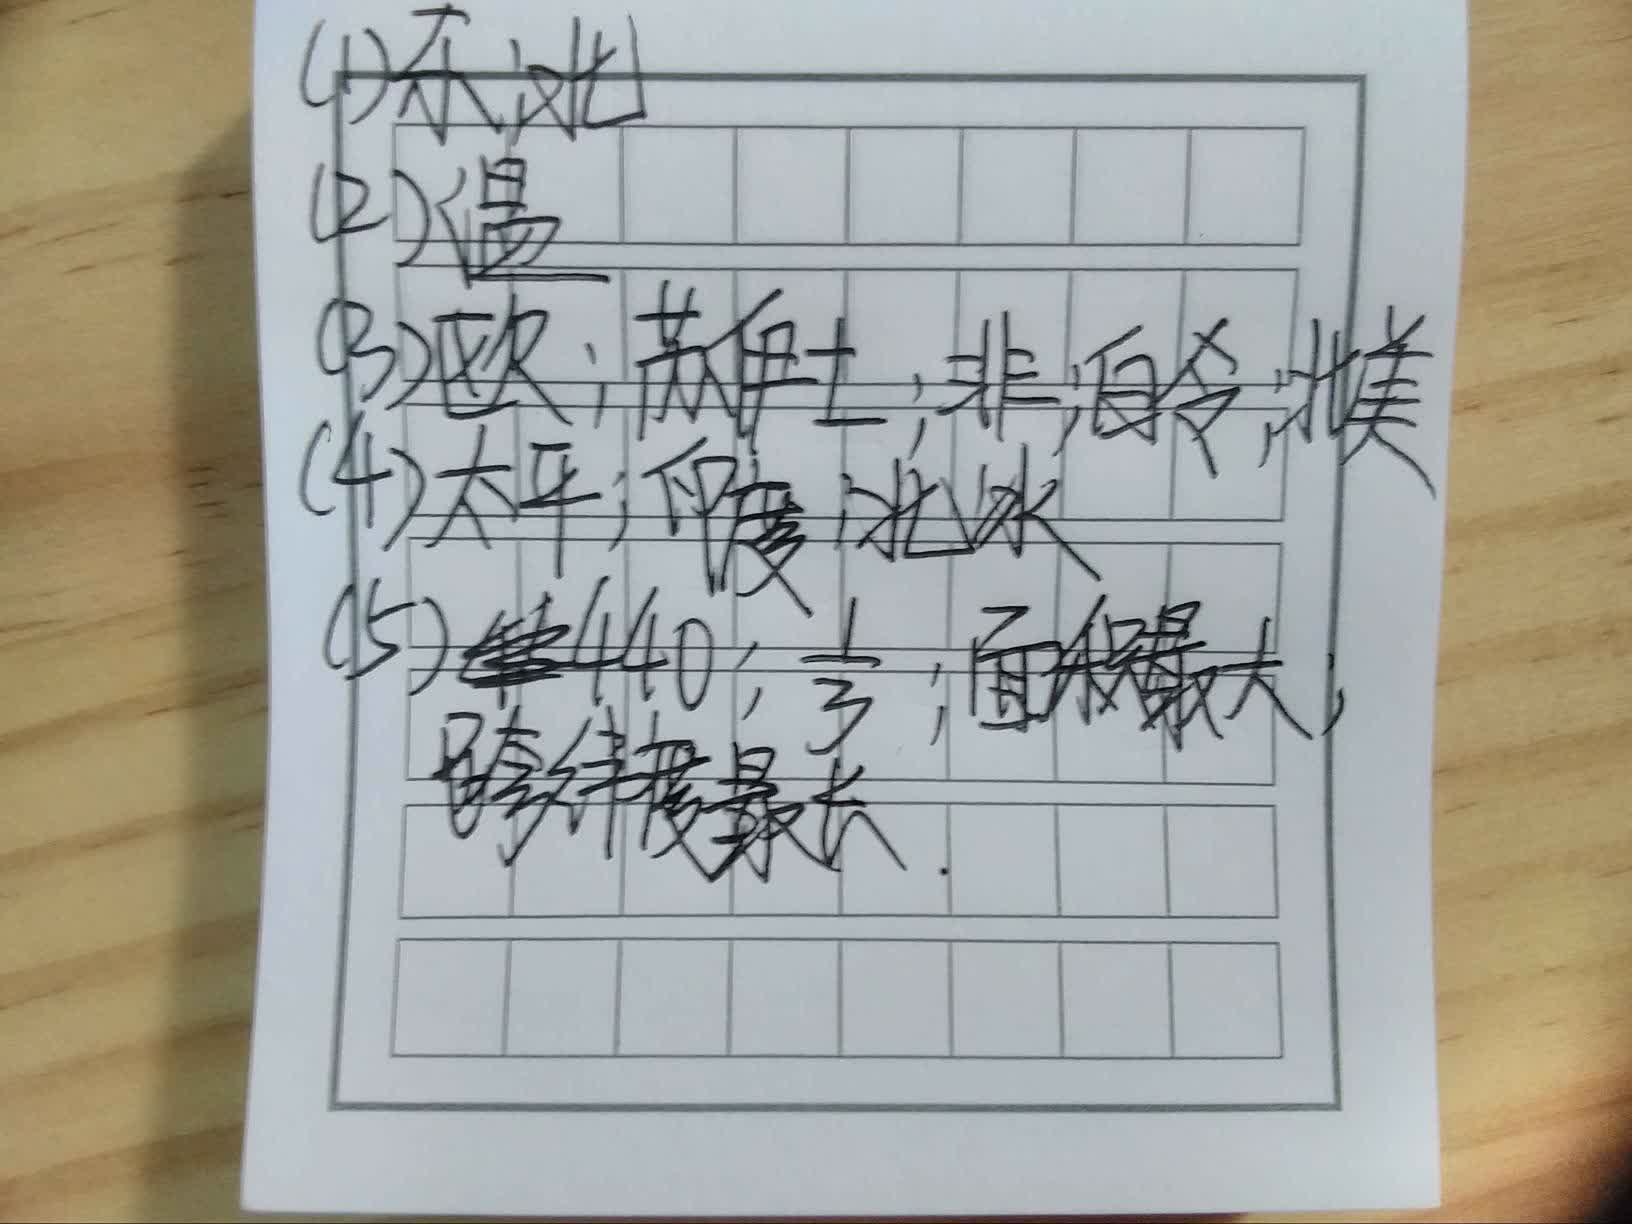 (1)东;北
(2)温
(3)欧;苏伊士;非;白令;北美
(4)太平;印度;北冰
(5)4440;1/3;面积最大;
跨纬度最长.